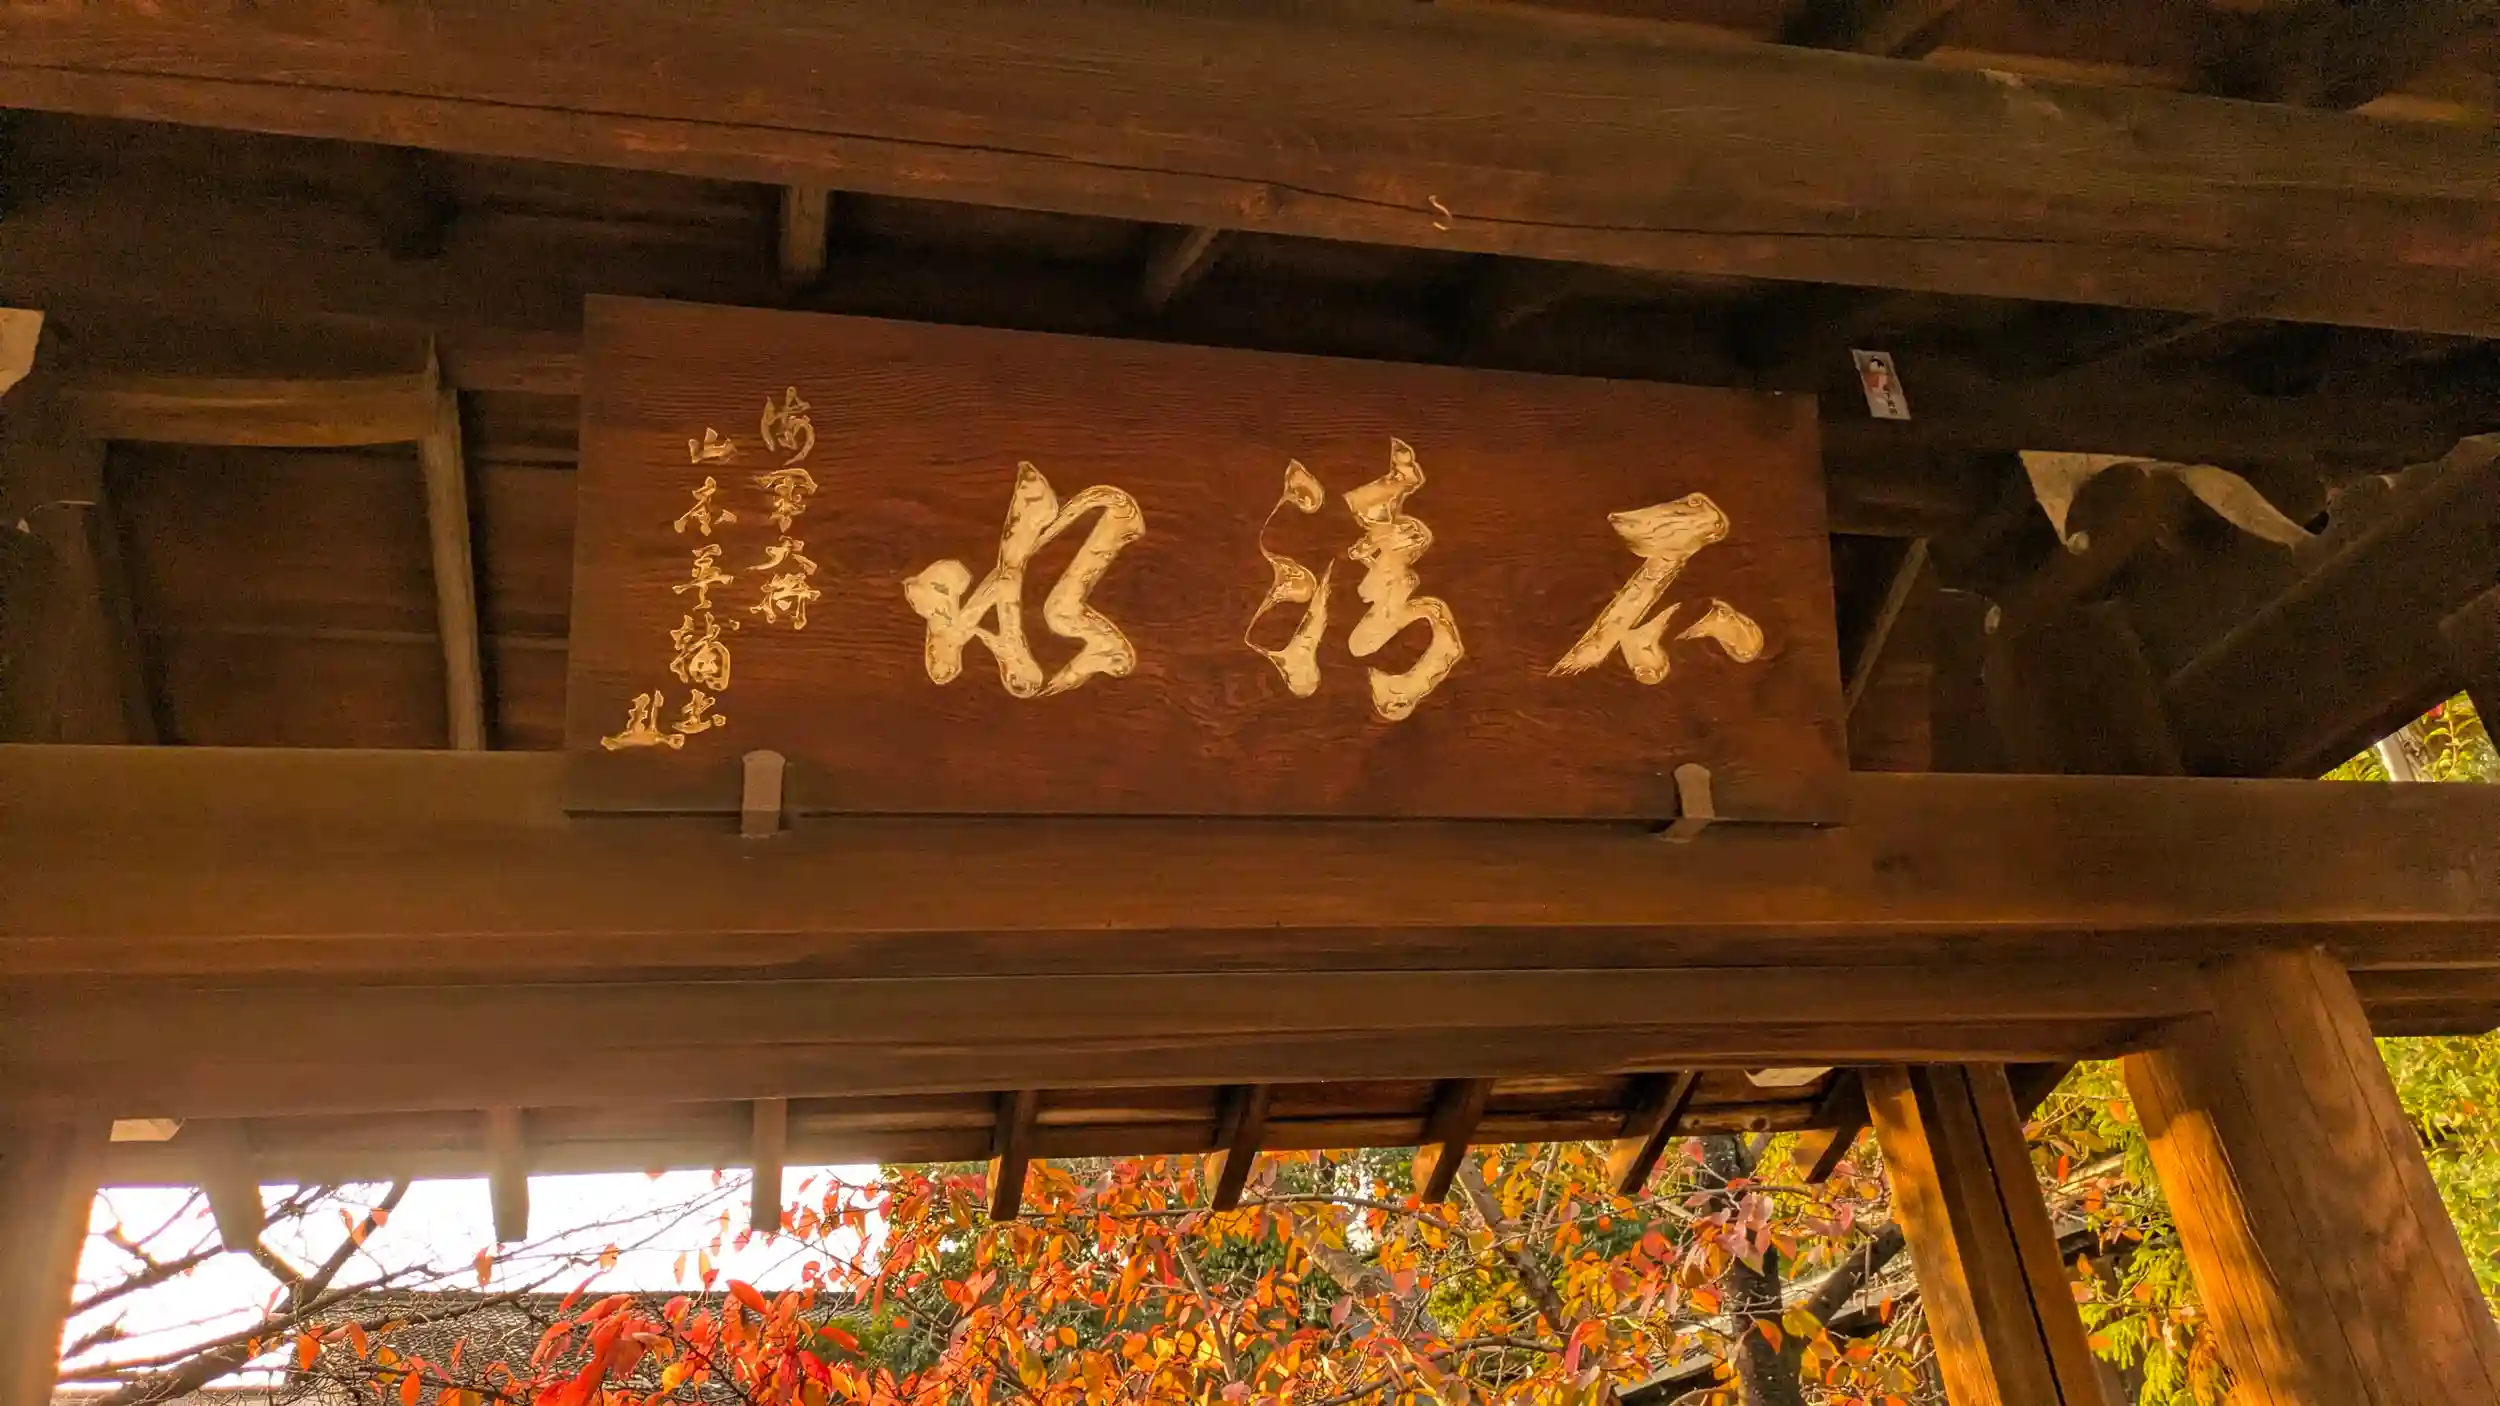 石清水
海軍大将
山本英輔書